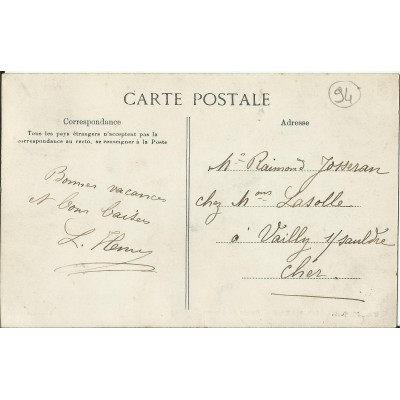 94
CARTE POSTALE
Correspondance
Tous les pays étrangers n'acceptent pas la
correspondance au recto, se renseigner à la Poste
Adresse
Bonnes vacances
et bons baisers
L. Henry
Mr Raimond Josseran
chez Mme Lasolle
à Vailly s/sauldre
Cher